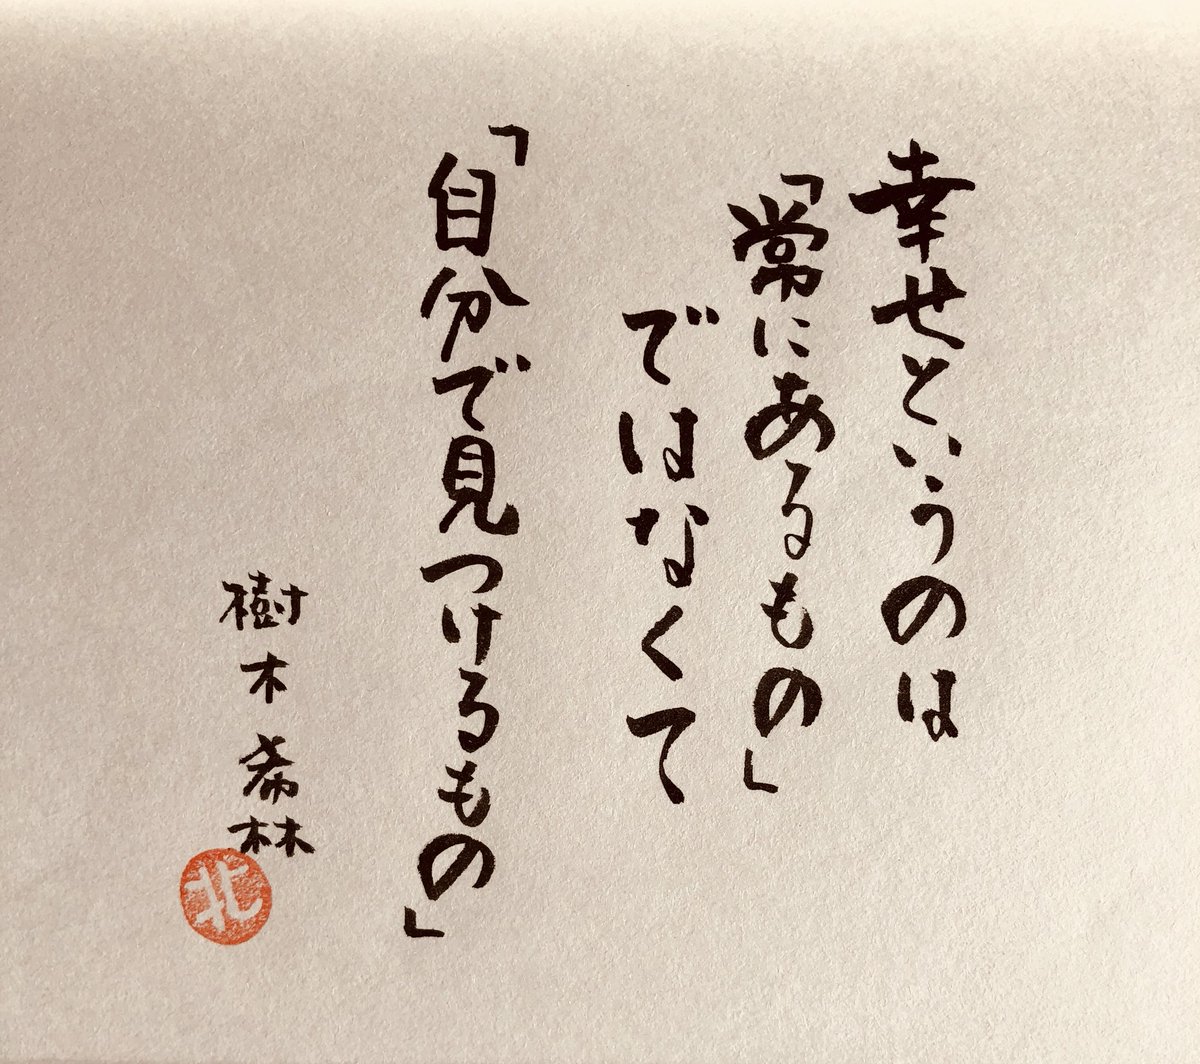 幸せというのは
「常にあるもの」
ではなくて
「自分で見つけるもの」
樹木希林
北